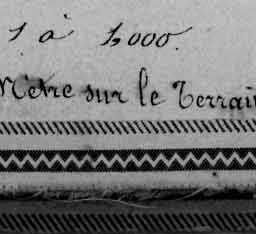 1 à 1000.
Mètre sur le Terrain